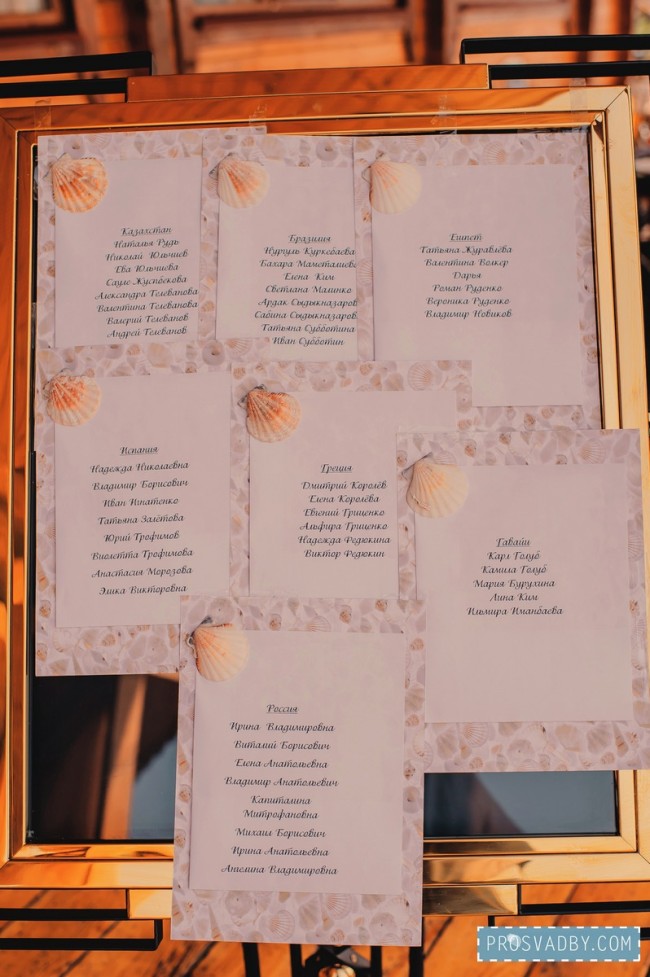 Казахстан
Наталья Рудь
Николай Юльчиев
Ева Юльчиева
Сауле Жуспбекова
Александра Телеванова
Валентина Телеванова
Валерий Телеванов
Андрей Телеванов
Бразилия
Нургуль Куркебаева
Бахара Маметалиева
Елена Ким
Светлана Малинко
Ардак Сыдыкназаров
Сабина Сыдыкназаров
Татьяна Субботина
Иван Субботин
Египет
Татьяна Журавлёва
Валентина Волкер
Дарья
Роман Руденко
Вероника Руденко
Владимир Новиков
Испания
Надежда Николаевна
Владимир Борисович
Иван Игнатенко
Татьяна Залётова
Юрий Трофимов
Виолетта Трофимова
Анастасия Морозова
Элика Викторовна
Греция
Дмитрий Королёв
Елена Королёва
Евгений Гриценко
Альфира Гриценко
Надежда Федюкина
Виктор Федюкин
Гавайи
Карл Голуб
Камила Голуб
Мария Бурухина
Лина Ким
Ильмира Иманбаева
Россия
Ирина Владимировна
Виталий Борисович
Елена Анатольевна
Владимир Анатольевич
Капиталина
Митрофановна
Михаил Борисович
Ирина Анатольевна
Ангелина Владимировна
PROSVADBY.COM